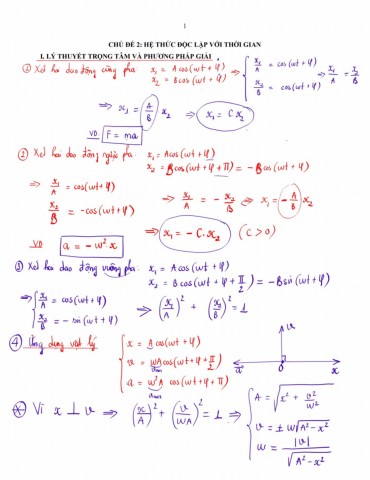 1
CHỦ ĐỀ 2: HỆ THỨC ĐỘC LẬP VỚI THỜI GIAN
I. LÝ THUYẾT TRỌNG TÂM VÀ PHƯƠNG PHÁP GIẢI
① Xét hai dao động cùng pha. x₁ = A cos(ωt + φ) ⇒ { x₁/A = cos(ωt + φ) ⇒ x₁/A = x₂/B
x₂ = B cos(ωt + φ) x₂/B = cos(ωt + φ)
⇒ x₁ = (A/B) x₂ ⇒ x₁ = C x₂
VD F = ma
② Xét hai dao động ngược pha. x₁ = A cos(ωt + φ)
x₂ = B cos(ωt + φ + π) = - B cos(ωt + φ)
⇒ x₁/A = cos(ωt + φ) ⇒ x₁/A = - x₂/B ⇔ x₁ = - (A/B) x₂
x₂/B = - cos(ωt + φ)
⇒ x₁ = - C. x₂ (C > 0)
VD a = - ω² x
③ Xét hai dao động vuông pha. x₁ = A cos(ωt + φ)
x₂ = B cos(ωt + φ + π/2) = - B sin(ωt + φ)
⇒ { x₁/A = cos(ωt + φ) ⇒ (x₁/A)² + (x₂/B)² = 1
x₂/B = - sin(ωt + φ)
④ Ứng dụng vật lý { x = A cos(ωt + φ)
v = ωA cos(ωt + φ + π/2)
vmax
a = ω²A cos(ωt + φ + π)
amax
v
a 0 x
⊗ Vì x ⊥ v ⇒ (x/A)² + (v/ωA)² = 1 ⇒ { A = √(x² + v²/ω²)
v = ± ω√(A² - x²)
ω = |v| / √(A² - x²)